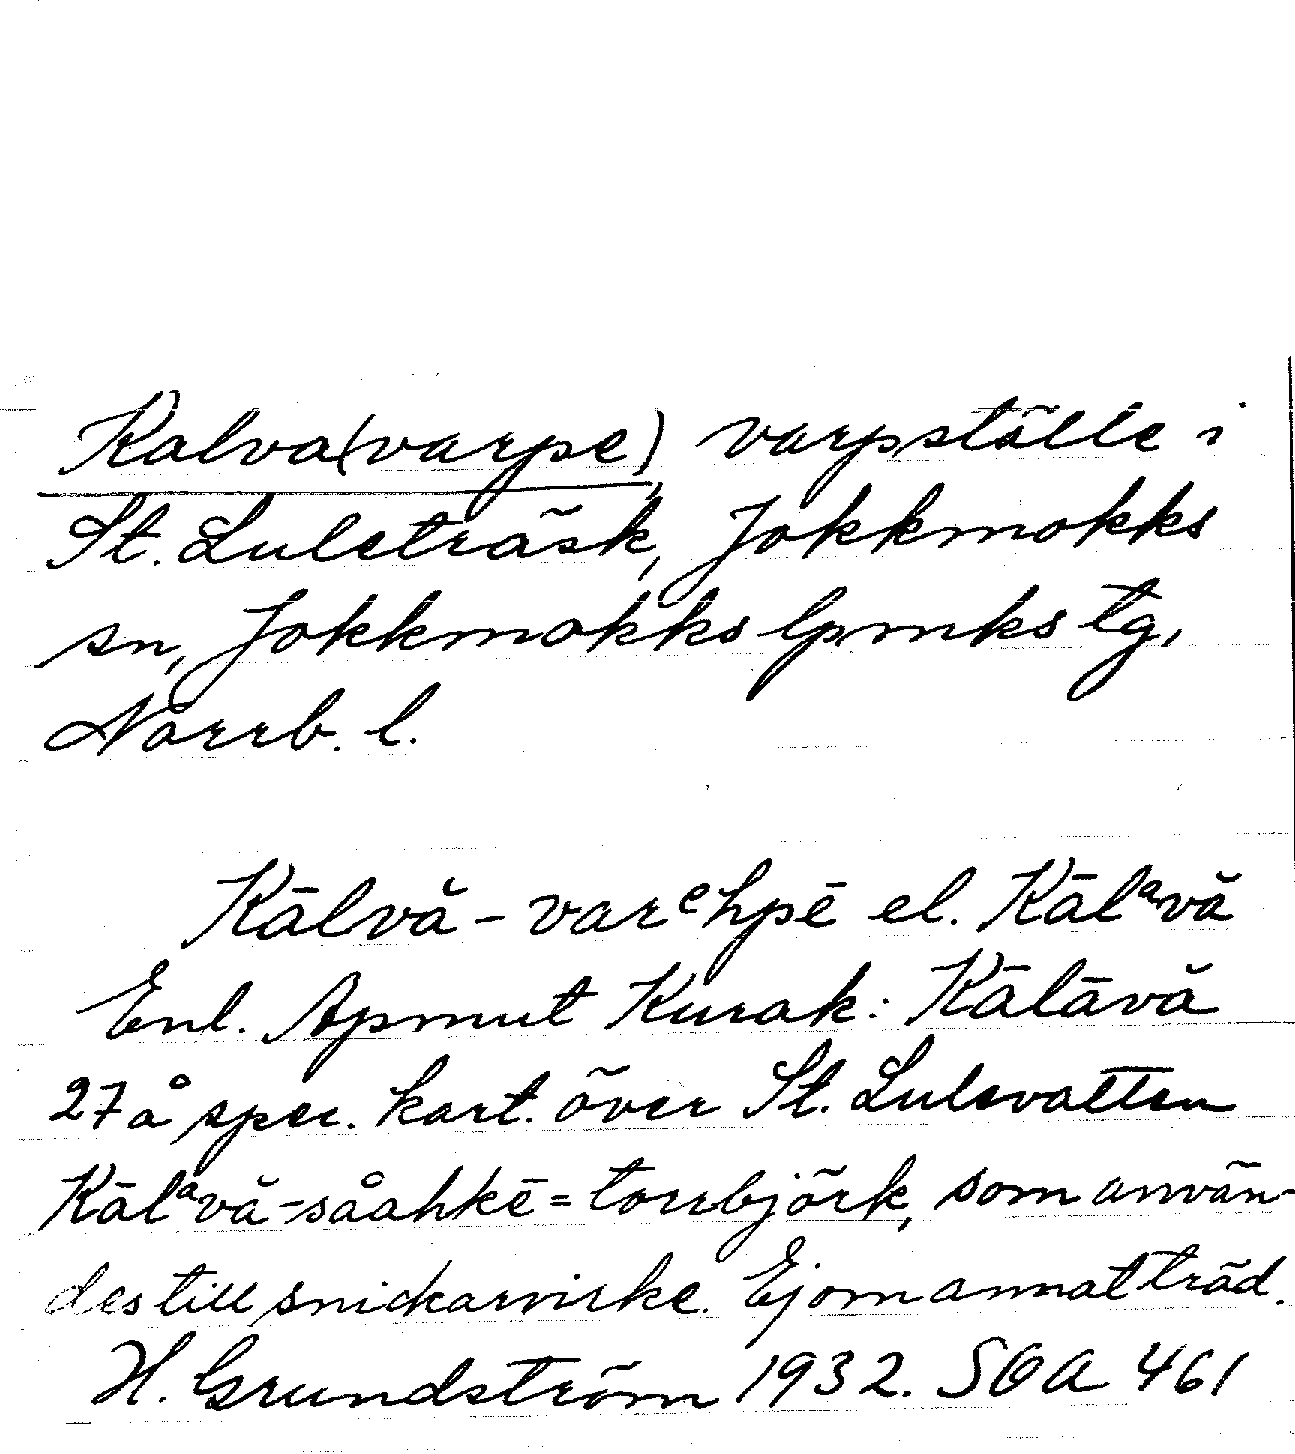 Kalva(varpe) varpställe i
St. Luleträsk, Jokkmokks
sn, Jokkmokks lpmks tg,
Norrb. l.
Kālvă - varᵉhpē el. Kālᵃvă
Enl. Apmut Kurak: Kālāvă
27 å spec. kart. över St. Lulevatten
Kālᵃvă-såahkē = torrbjörk, som använ-
des till snickarvirke. Ej om annat träd.
H. Grundström 1932. SOA 461